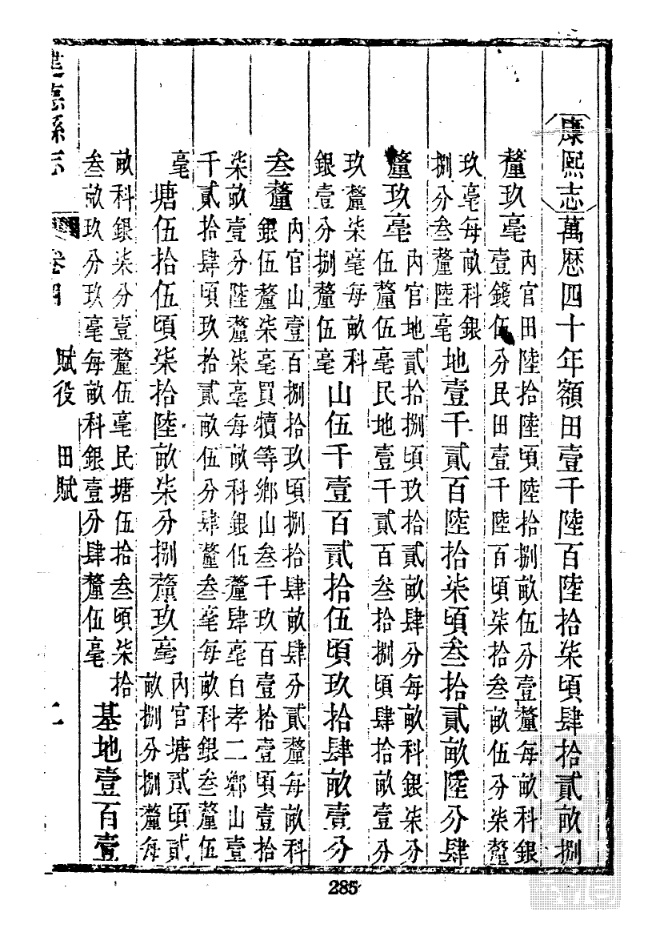 康熙志萬曆四十年額田壹千陸百陸拾柒頃肆拾貳畝捌
釐玖毫
内官田陸拾陸頃陸拾捌畝伍分壹釐每畝科銀
壹錢伍分民田壹千陸百頃柒拾叁畝伍分柒釐
玖毫每畝科銀
捌分叁釐陸毫
地壹千貳百陸拾柒頃叁拾貳畝陸分肆
釐玖毫
内官地貳拾捌頃玖拾貳畝肆分每畝科銀柒分
伍釐伍毫民地壹千貳百叁拾捌頃肆拾畝壹分
玖釐柒毫每畝科
銀壹分捌釐伍毫
山伍千壹百貳拾伍頃玖拾肆畝壹分
叁釐
内官山壹百捌拾玖頃捌拾肆畝肆分貳釐每畝科
銀伍釐柒毫買犢等鄉山叁千玖百壹拾壹頃壹拾
柒畝壹分陸釐柒毫每畝科銀伍釐肆毫白孝二鄉山壹
千貳拾肆頃玖拾貳畝伍分肆釐叁毫每畝科銀叁釐伍
毫
塘伍拾伍頃柒拾陸畝柒分捌釐玖毫
内官塘貳頃貳
畝捌分捌釐每
畝科銀柒分壹釐伍毫民塘伍拾叁頃柒拾
叁畝玖分玖毫每畝科銀壹分肆釐伍毫
基地壹百壹
建德縣志 卷四 賦役 田賦 二
285